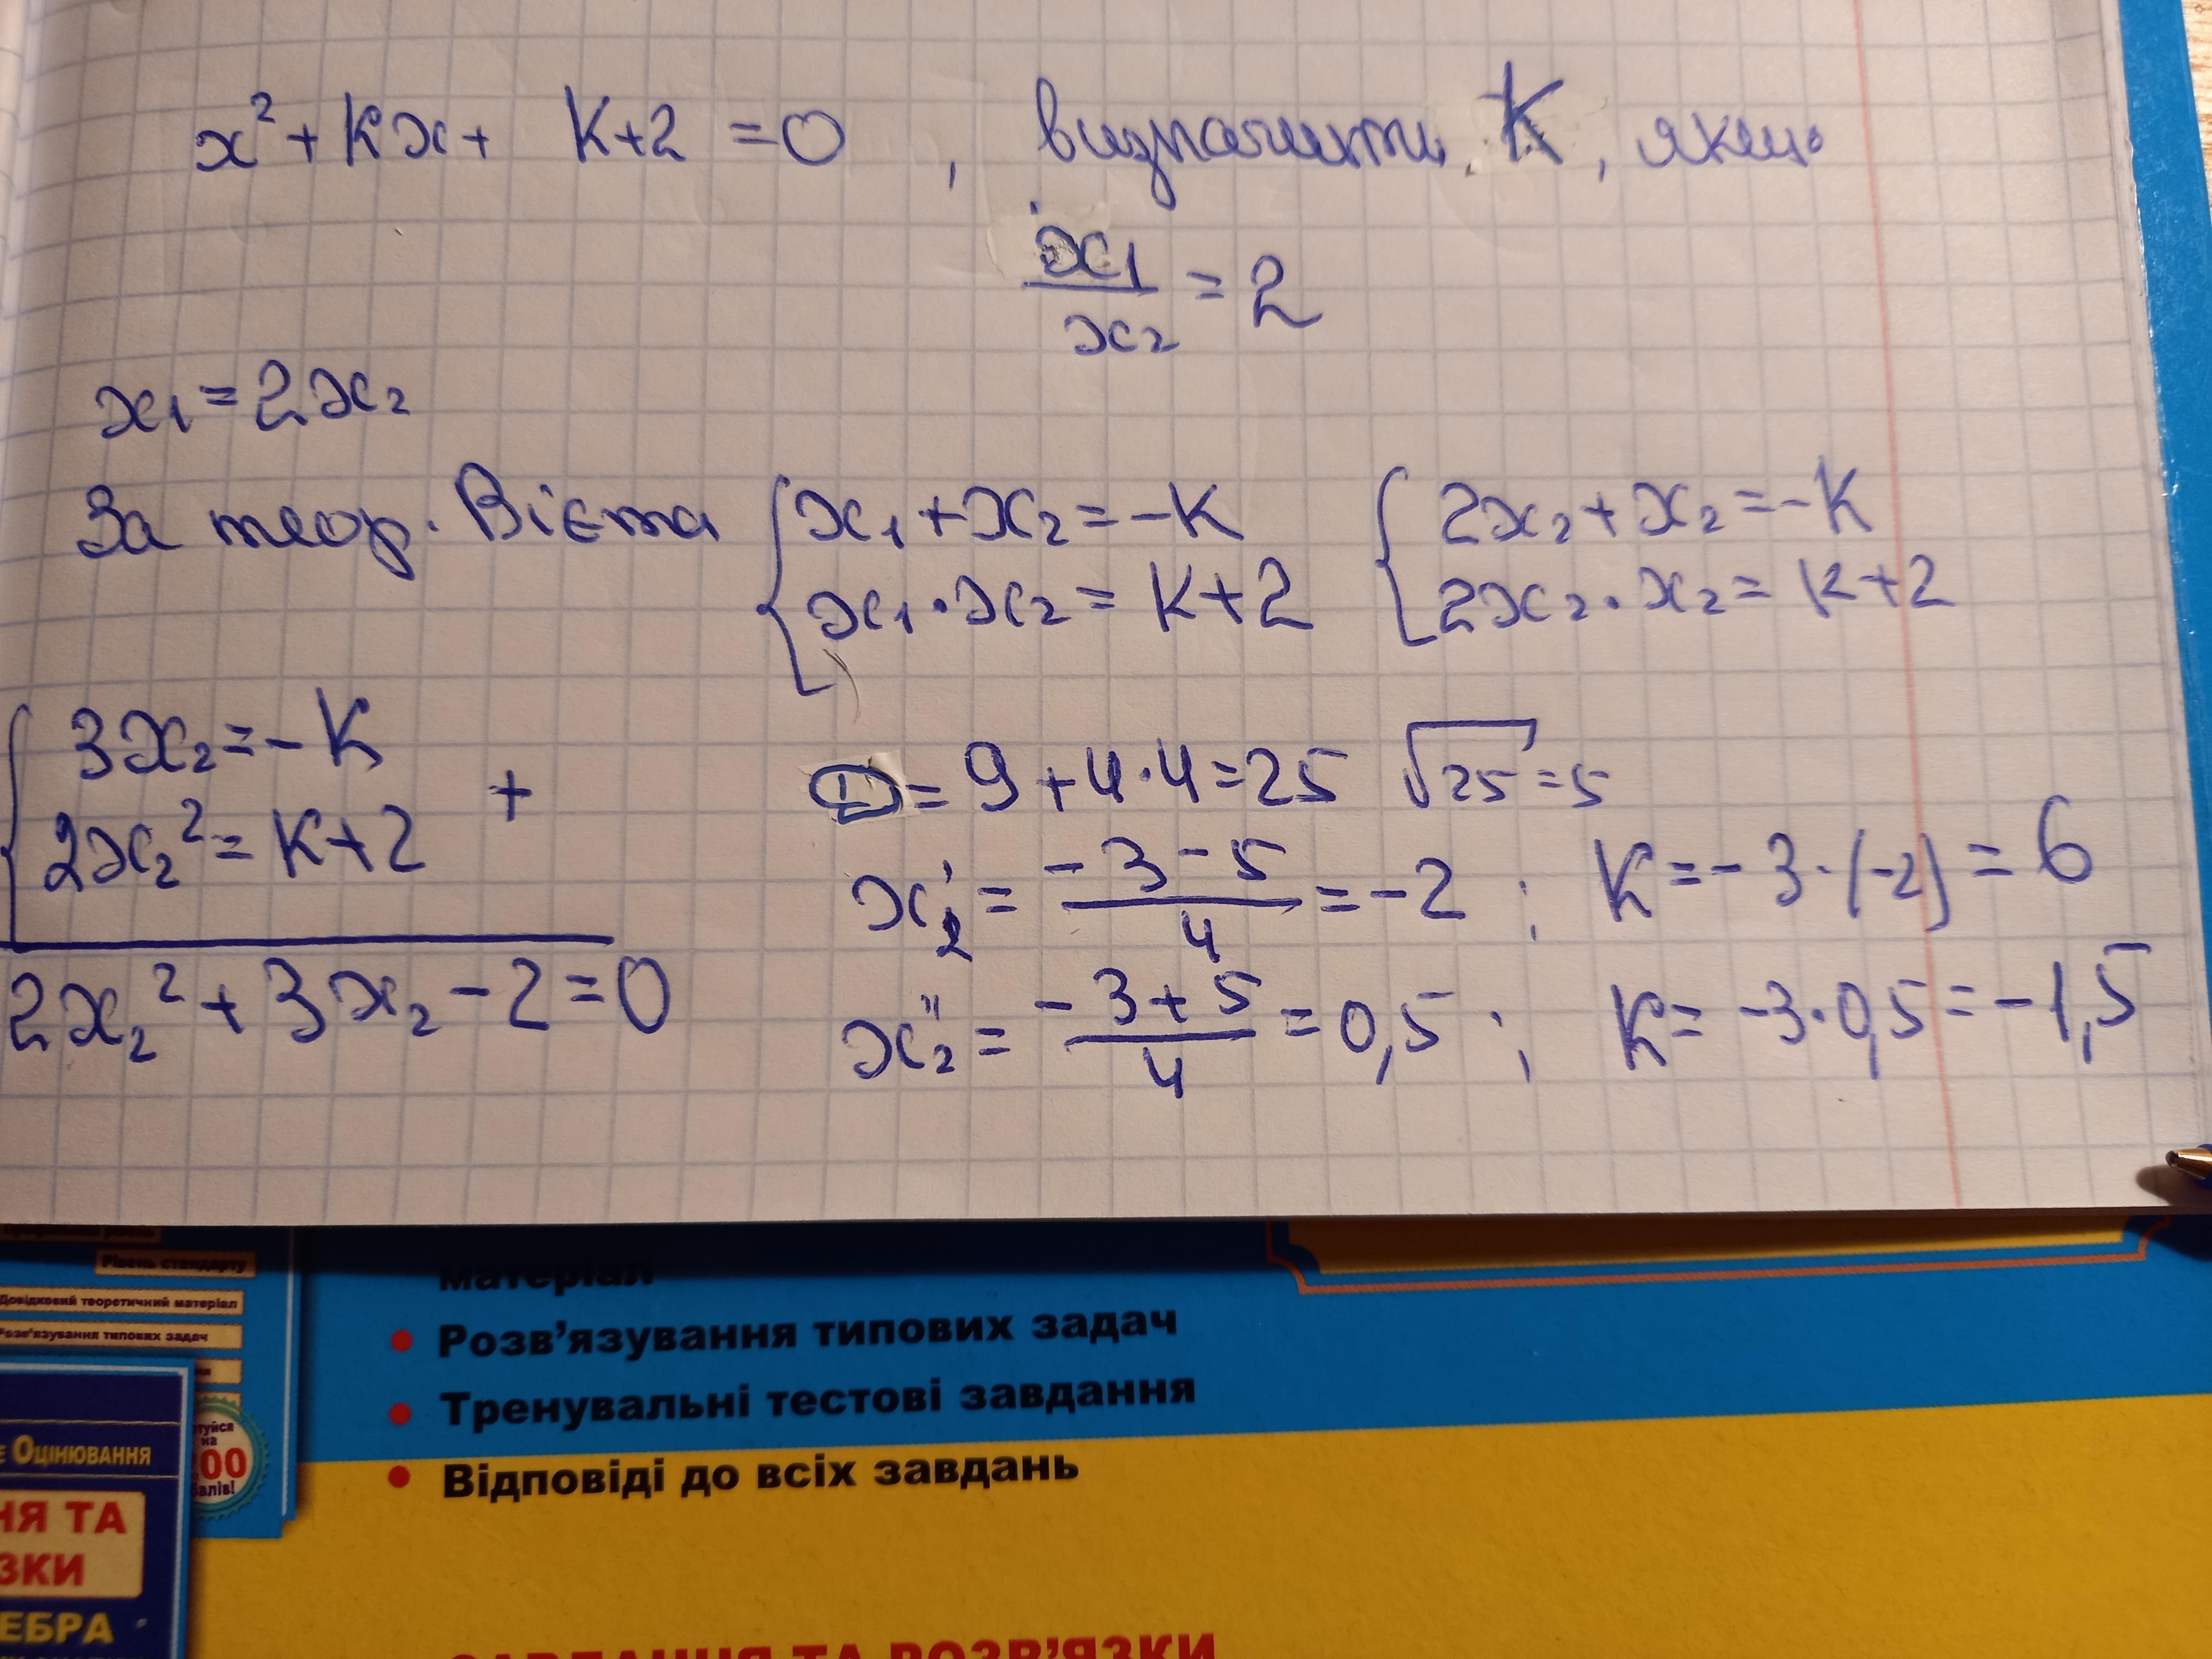 x² + kx + k+2 = 0, визначити k, якщо
x₁/x₂ = 2
x₁ = 2x₂
За теор. Вієта { x₁ + x₂ = -k { 2x₂ + x₂ = -k
x₁ · x₂ = k+2 2x₂ · x₂ = k+2
{ 3x₂ = -k
2x₂² = k+2 +
2x₂² + 3x₂ - 2 = 0
D = 9 + 4·4 = 25 √25 = 5
x₂' = (-3-5)/4 = -2 ; k = -3·(-2) = 6
x₂'' = (-3+5)/4 = 0,5 ; k = -3·0,5 = -1,5
Рівень стандарту
Довідковий теоретичний матеріал
Розв'язування типових задач
матеріал
• Розв'язування типових задач
• Тренувальні тестові завдання
• Відповіді до всіх завдань
ОЦІНЮВАННЯ
ТА
ЗАВДАННЯ ТА РОЗВ'ЯЗКИ